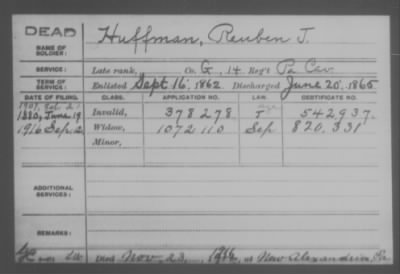 DEAD
NAME OF SOLDIER:
Huffman, Reuben J.
SERVICE: Late rank, Co. G, 14 Reg't Pa Cav.
TERM OF SERVICE: Enlisted Sept. 16, 1862 Discharged June 20, 1865
DATE OF FILING. CLASS. APPLICATION NO. LAW. CERTIFICATE NO.
1880, June 19 Invalid, 378278. 542937.
1916 Sep. 2 Widow, 1072110 Sep 820.331
Minor,
ADDITIONAL SERVICES:
REMARKS:
Died Nov. 23, at New Alexandria, Pa